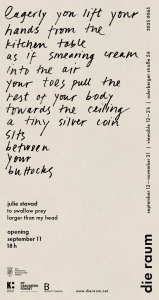 Eagerly you lift your
hands from the
kitchen table
as if smearing cream
into the air
your toes pull the
rest of your body
towards the ceiling
a tiny silver coin
sits
between
your
buttocks
julie stavad
to swallow prey
larger than my head
opening
september 11
18 h
www.dieraum.net
september 12 – november 21 | viewable 12 – 25 | oderberger straße 56
die raum